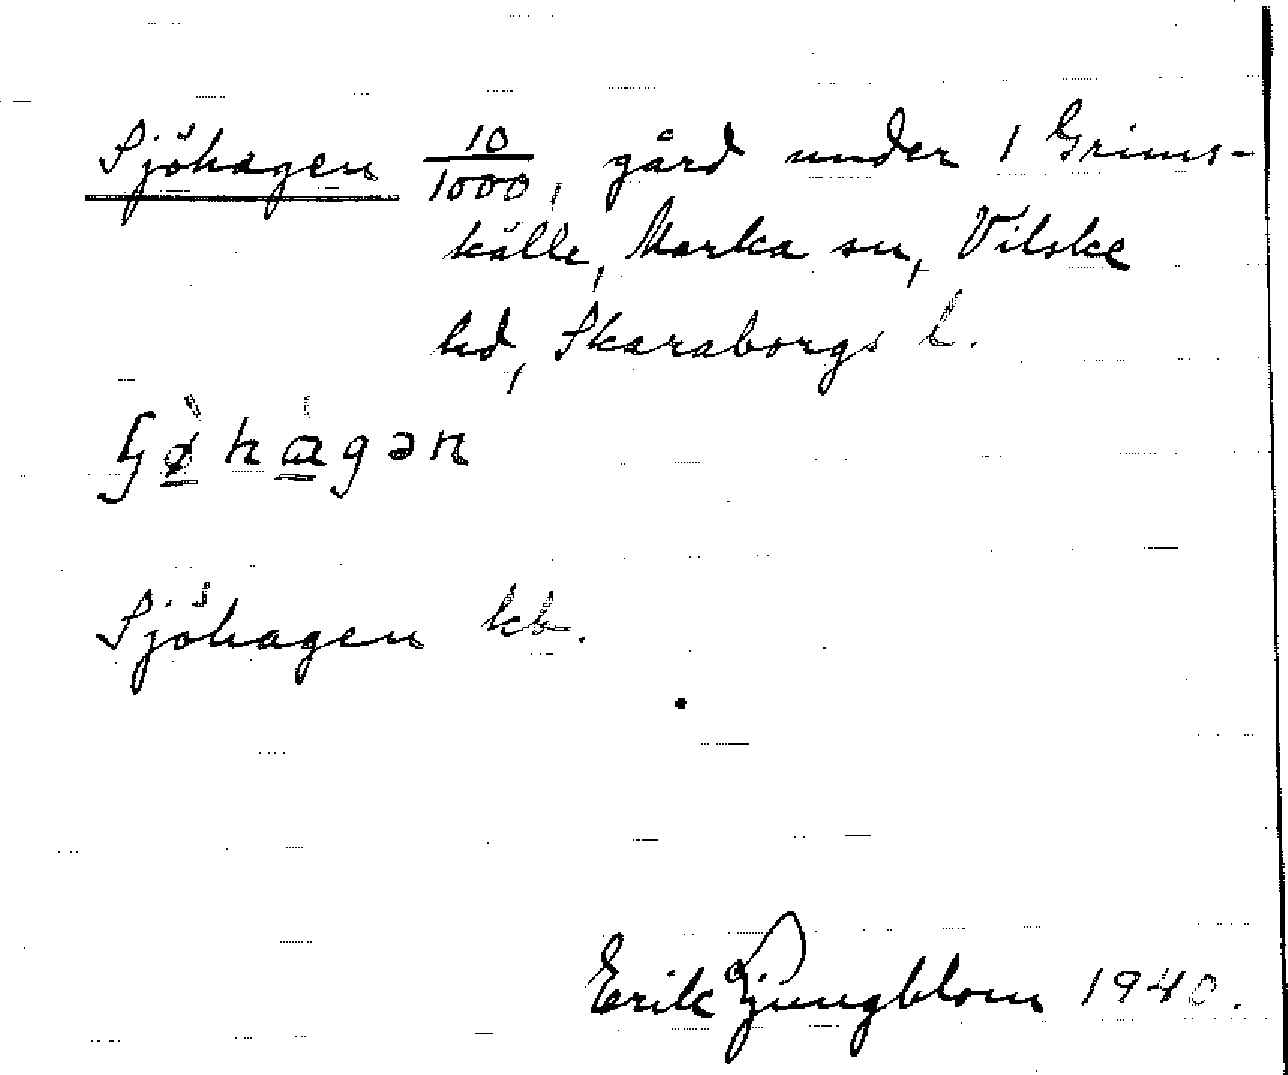 Sjöhagen 10/1000, gård under 1 Grims-
källe, Marka sn, Vilske
hd, Skaraborgs l.
Sjöhagen kb.
Erik Ljungblom 1940.